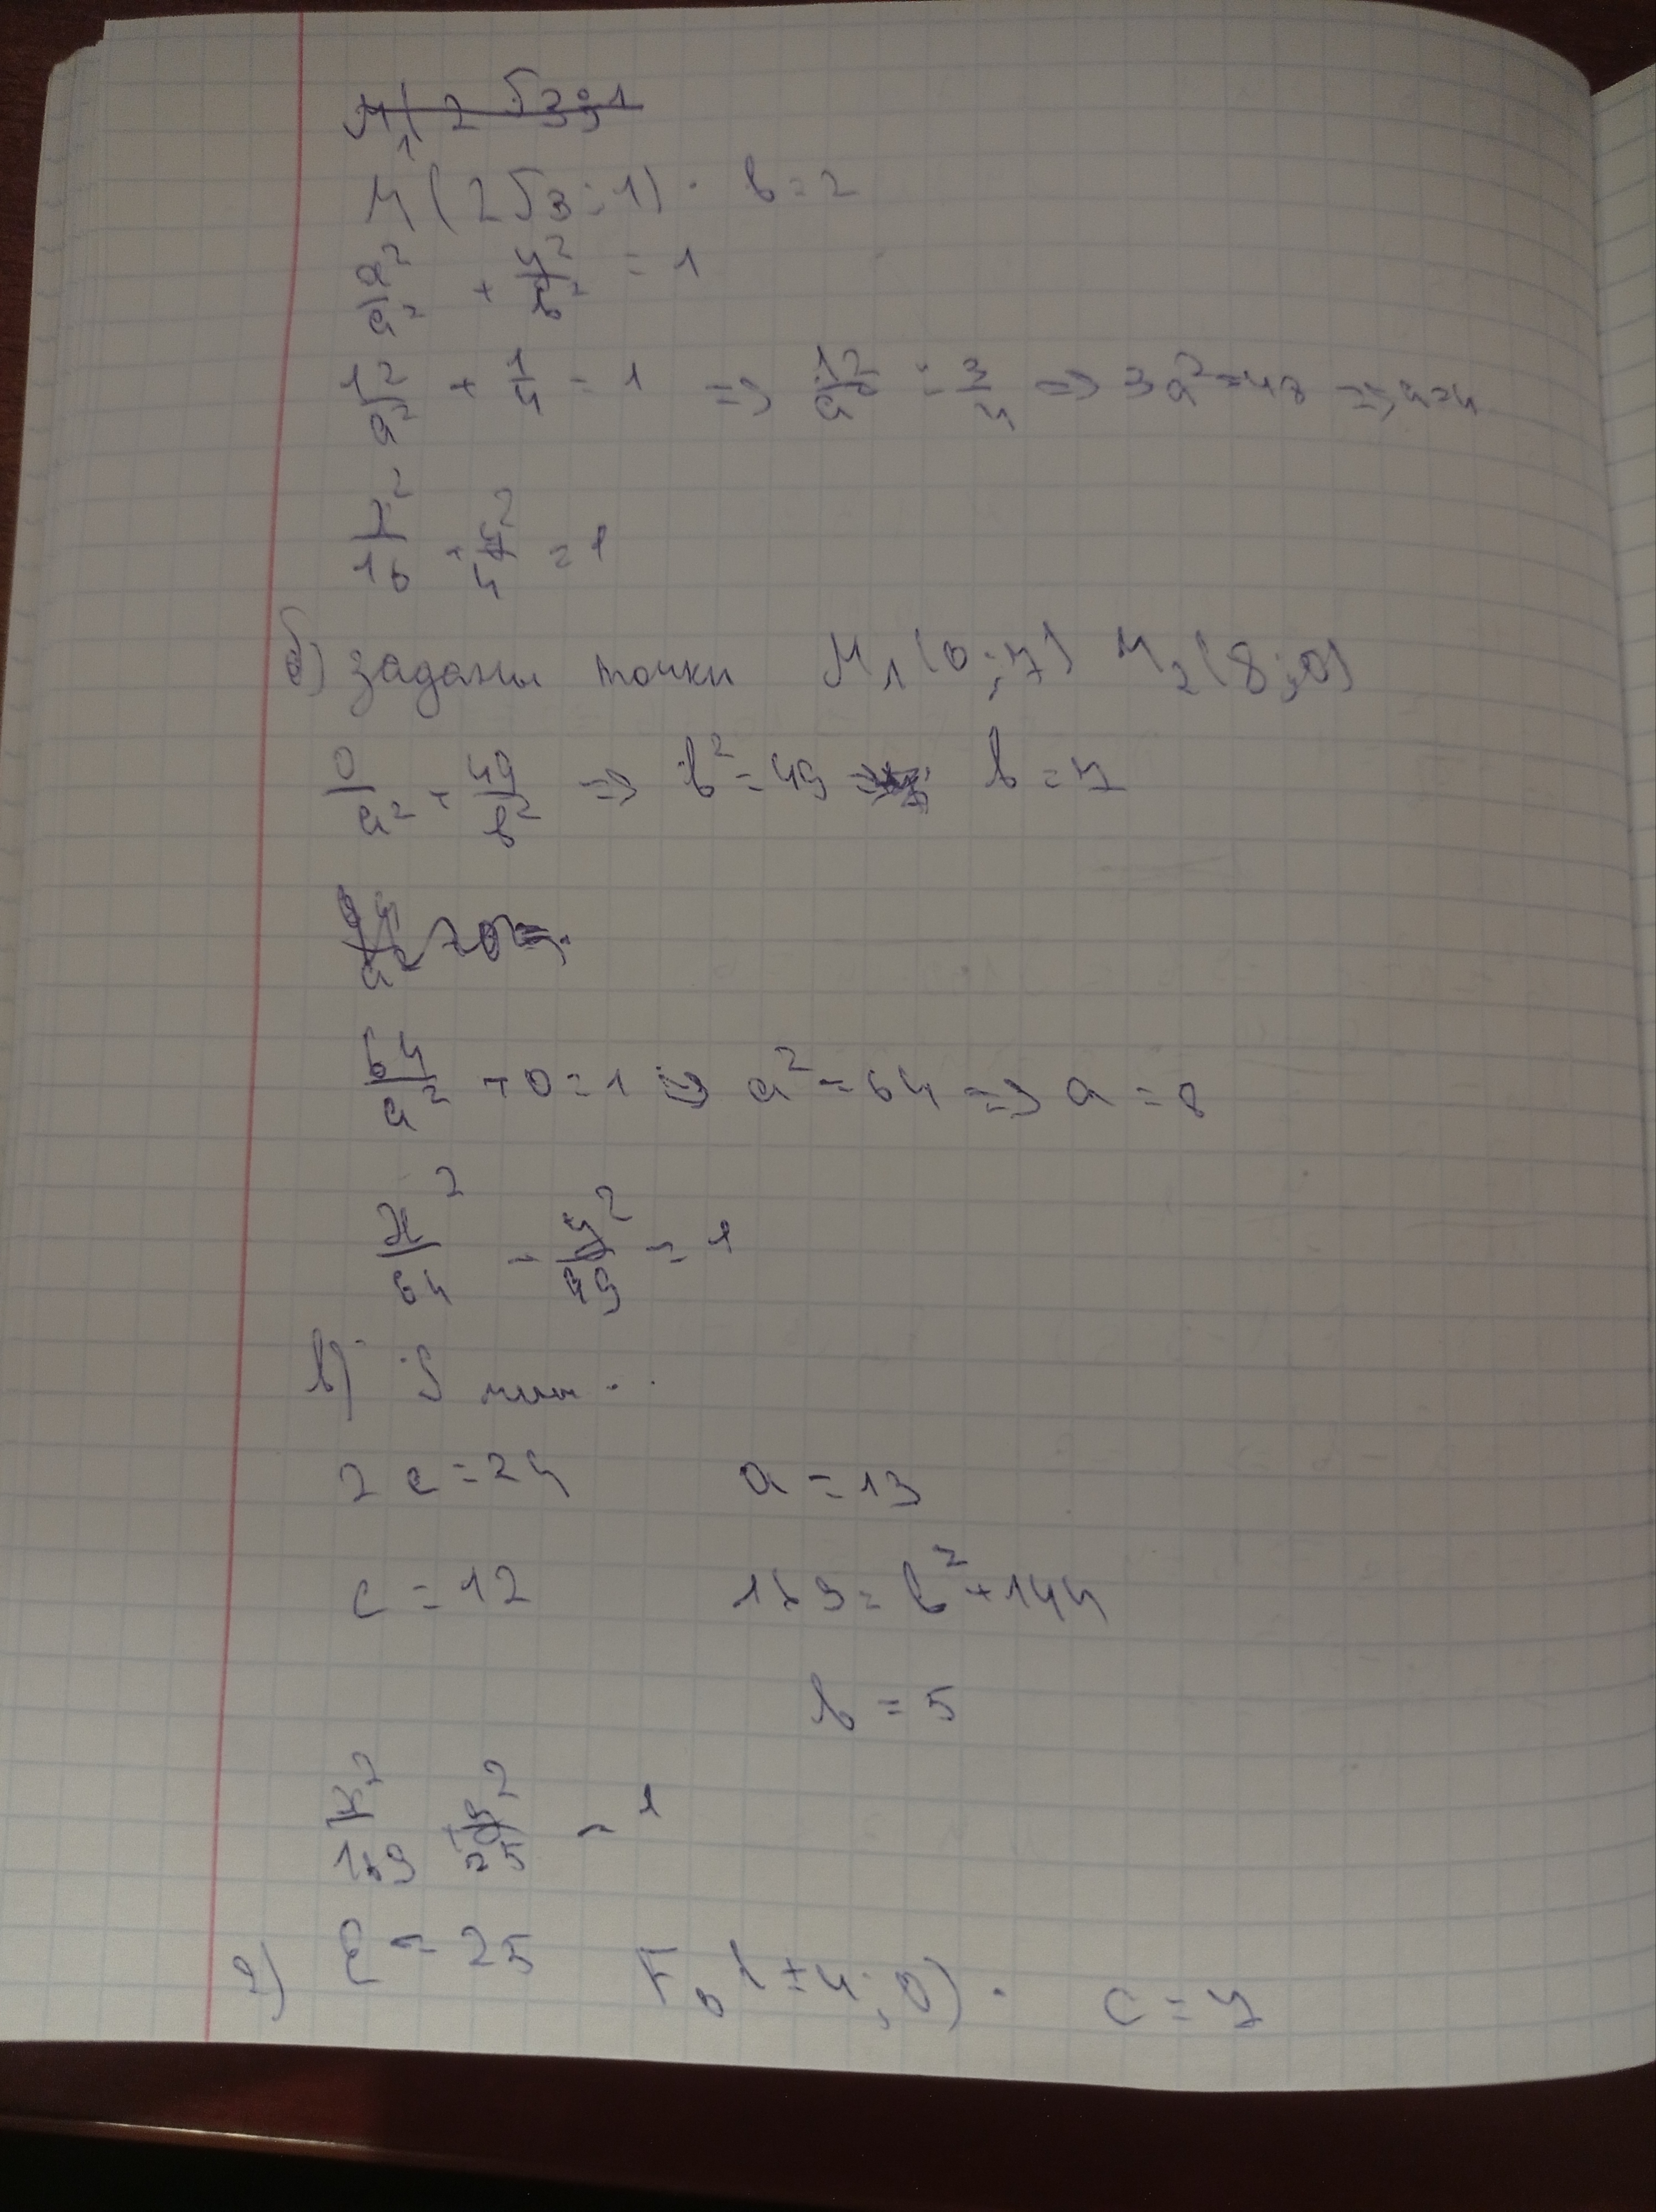 M₁(2√3;1
M(2√3;1). b=2
x²/a² + y²/b² = 1
12/a² + 1/4 = 1 => 12/a² = 3/4 => 3a²=48 => a=4
x²/16 + y²/4 = 1
б) заданы точки M₁(0;7) M₂(8;0)
0/a² + 49/b² => b²=49 b=7
64/a² + 0 = 1 => a²=64 => a=8
x²/64 - y²/49 = 1
в)
2c=24 a=13
c=12 169=b²+144
b=5
x²/169 + y²/25 = 1
г) ε=25 F (±4;0). c=7